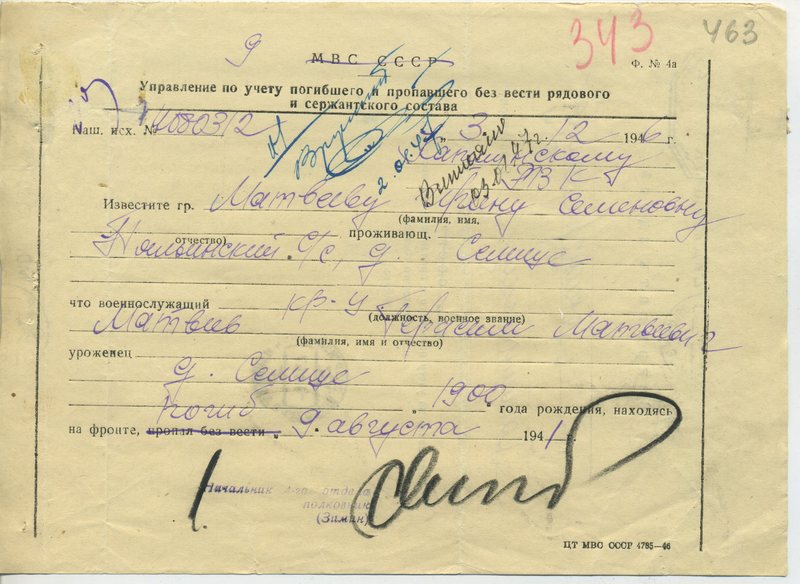 343
463
9
МВС СССР
Ф. № 4а
Управление по учету погибшего и пропавшего без вести рядового
и сержантского состава
Наш. исх. № 40803/2 „ 3 12 1946 г.
Вручить
2.01.47
Вниманию
03.01.47г.
РВК
Известите гр. Матвееву Семеновну
(фамилия, имя,
отчество) проживающ.
с/с, д. Селище
что военнослужащий кр-ц
(должность, военное звание)
Матвеев Герасим Матвеевич
(фамилия, имя и отчество)
уроженец
д. Селище
„ 1900 " года рождения, находясь
погиб
на фронте, пропал без вести „ 9 " августа 1941 г.
Начальник 4-го отдела
полковник
(Зимин)
ЦТ МВС СССР 4785—46